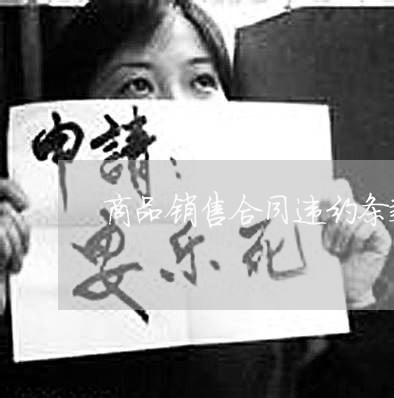 申請：
商品销售合同违约条
安乐死